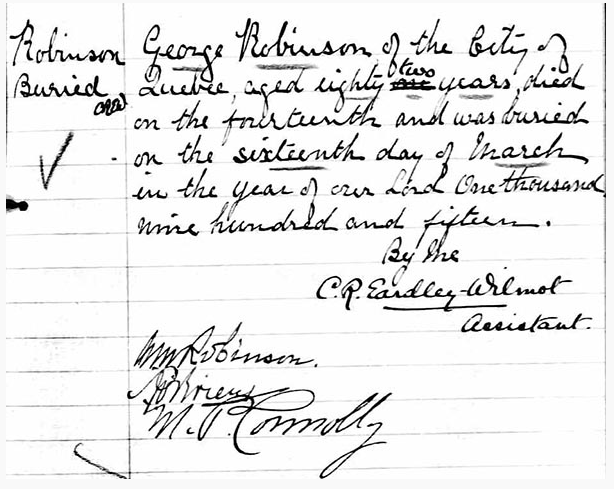 Robinson
Buried
George Robinson of the City of
Quebec, aged eighty two one years, died
on the fourteenth and was buried
on the sixteenth day of March
in the year of our Lord One thousand
nine hundred and fifteen.
By Me
C.R. Eardley-Wilmot
Assistant.
Wm Robinson.
M. P. Connolly